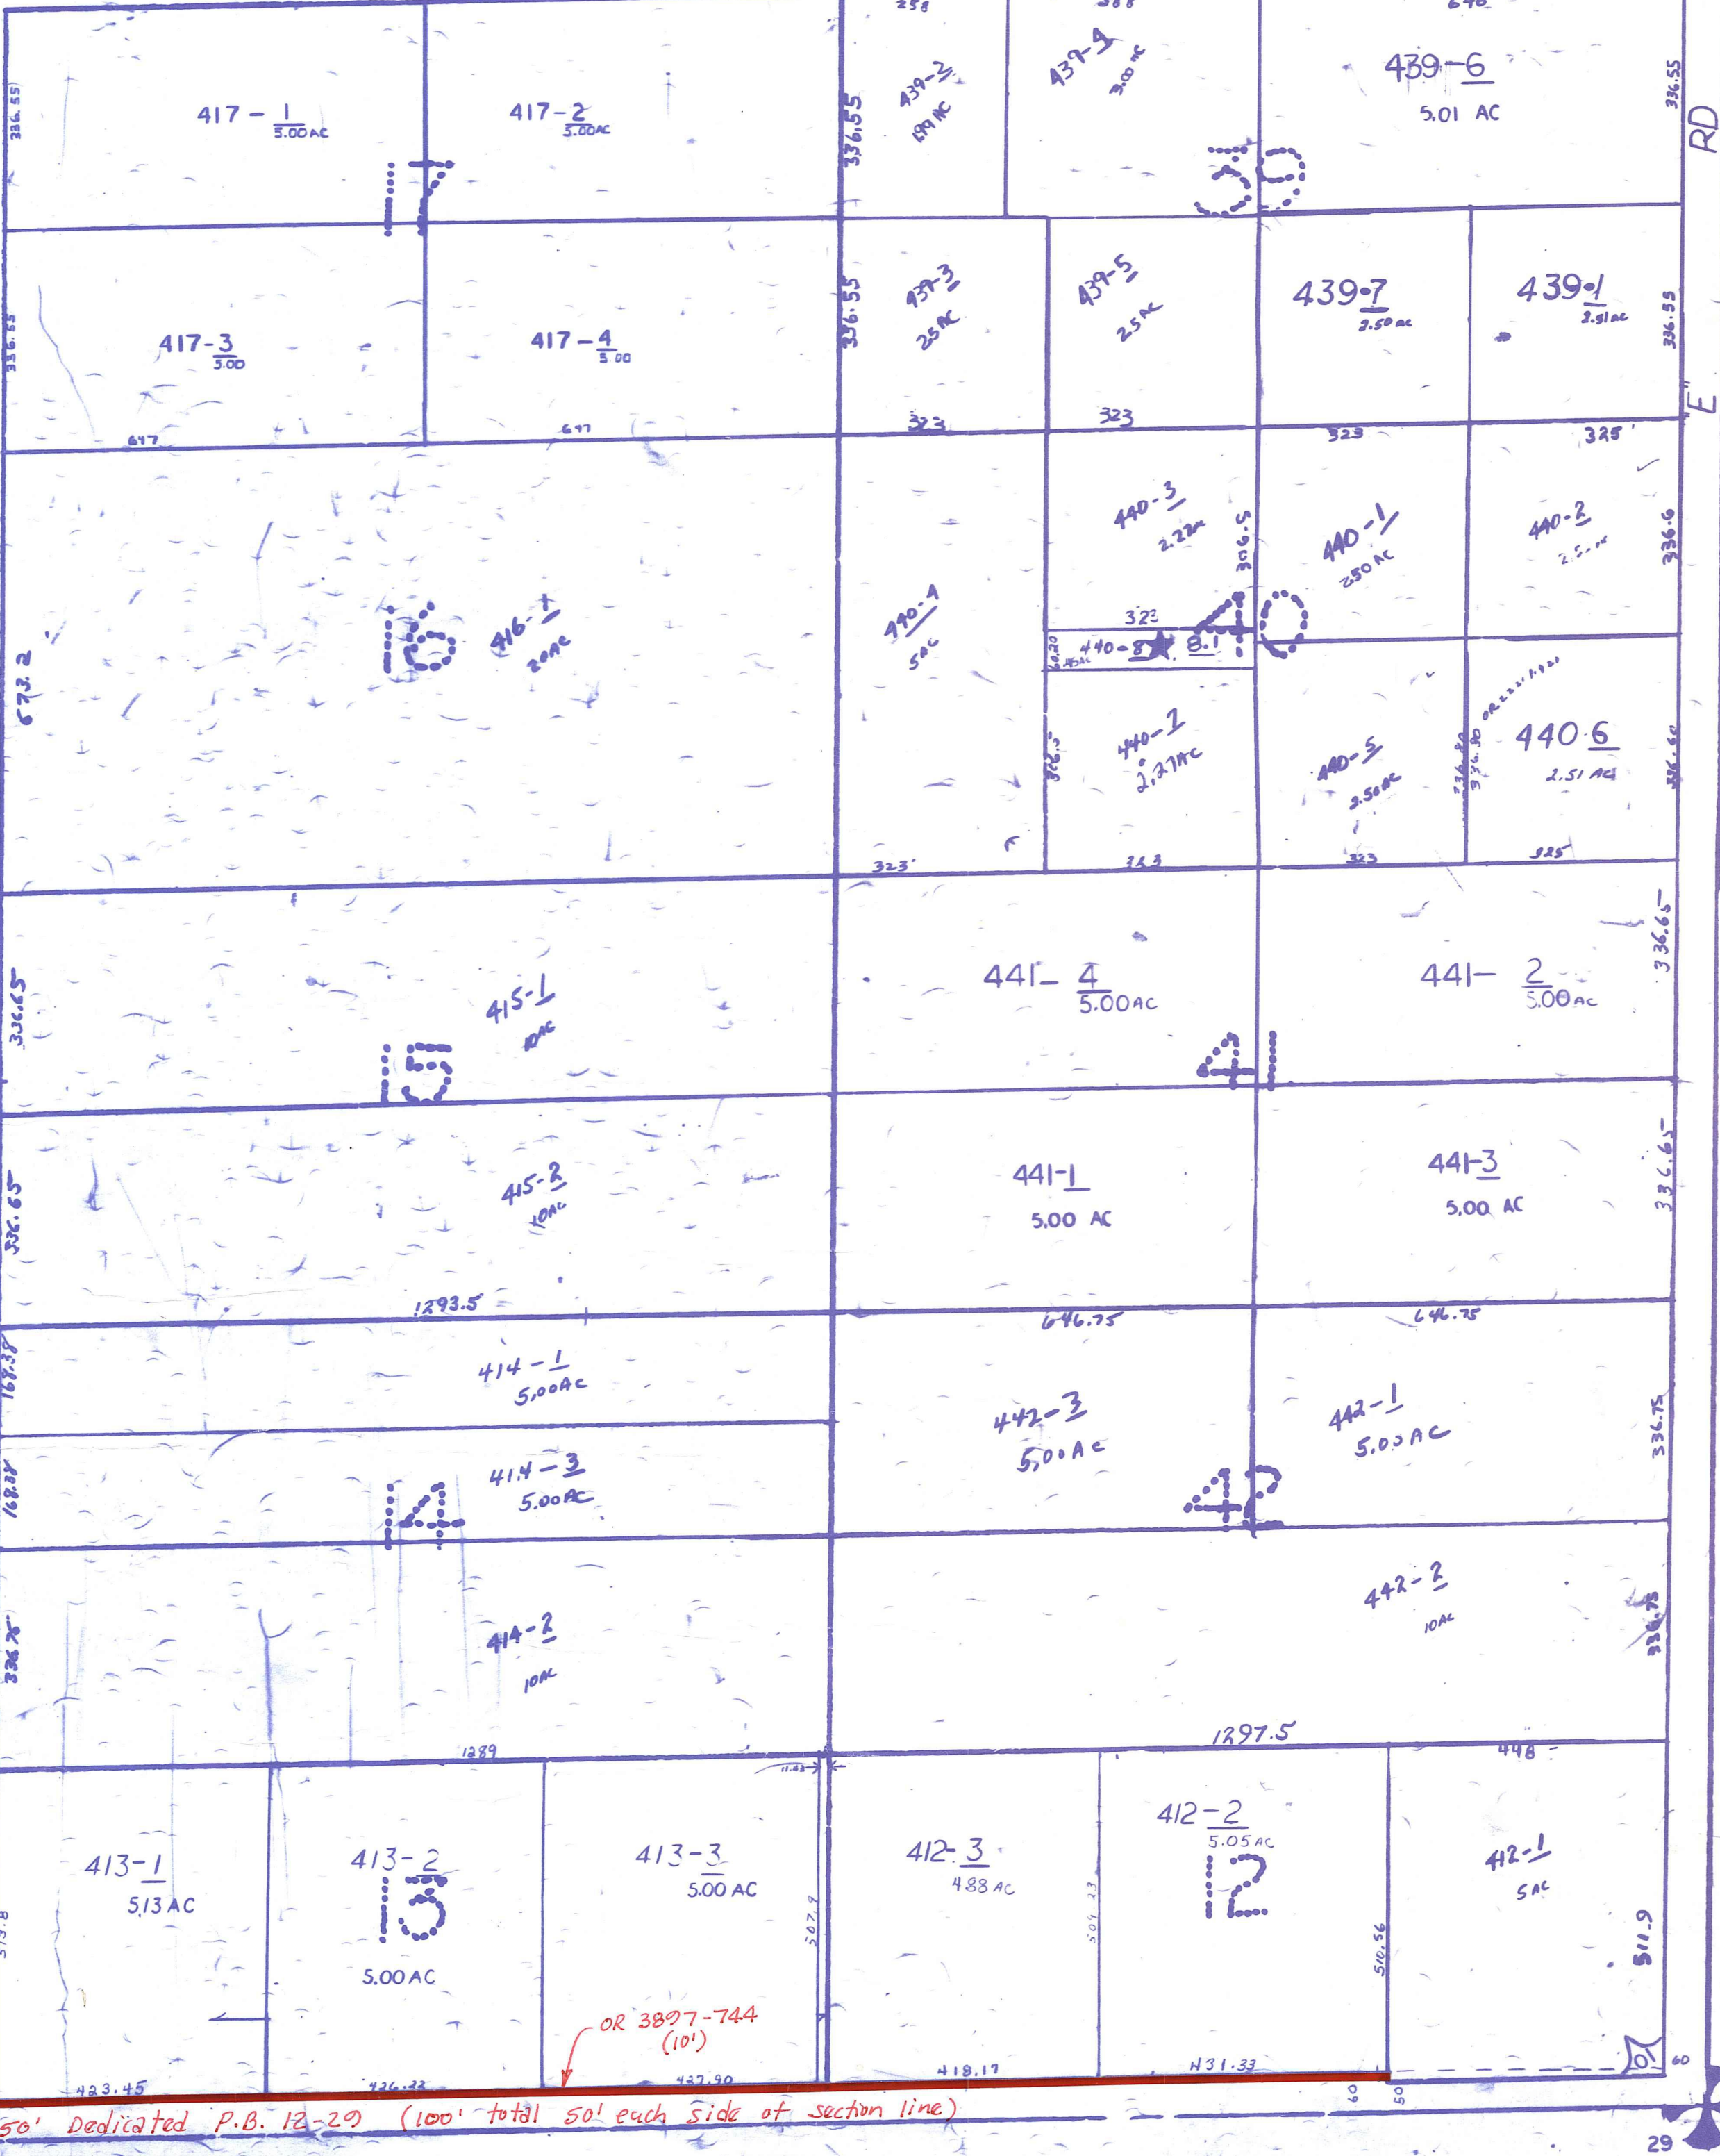 258
640
417-1
5.00 AC
417-2
5.00AC
439-2
439-4
3.00 AC
439-6
5.01 AC
336.55
336.55
336.55
RD
17
39
417-3
5.00
417-4
5.00
439-3
2.5 AC
439-5
2.5 AC
439-7
2.50 AC
439-1
2.51 AC
336.55
336.55
336.55
"E"
647
647
323
323
323
325'
16
416-1
20AC
673.2
440-4
5AC
440-3
2.22AC
306.5
440-1
2.50 AC
440-2
336.6
323
40
60.20
440-8
8.1
440-5
2.50AC
440-6
2.51 AC
2.27AC
336.80
336.80
336.60
323'
323
323
325
336.65
415-1
10AC
15
441-4
5.00AC
41
441-2
5.00AC
336.65
336.65
415-2
10AC
441-1
5.00 AC
441-3
5.00 AC
336.65
1293.5
646.75
646.75
168.38
414-1
5.00AC
168.38
414-3
5.00AC
14
442-3
5.00AC
42
442-1
5.00AC
336.75
336.75
414-2
10AC
442-2
10AC
336.75
1289
1297.5
448
413-1
5.13 AC
413-2
13
5.00 AC
413-3
5.00 AC
507.9
412-3
4.88 AC
509.23
412-2
5.05 AC
12
510.56
412-1
5AC
511.9
OR 3897-744
(10')
423.45
426.22
427.90
418.17
431.33
60
60
50
50' Dedicated P.B. 12-29 (100' total 50' each side of section line)
29